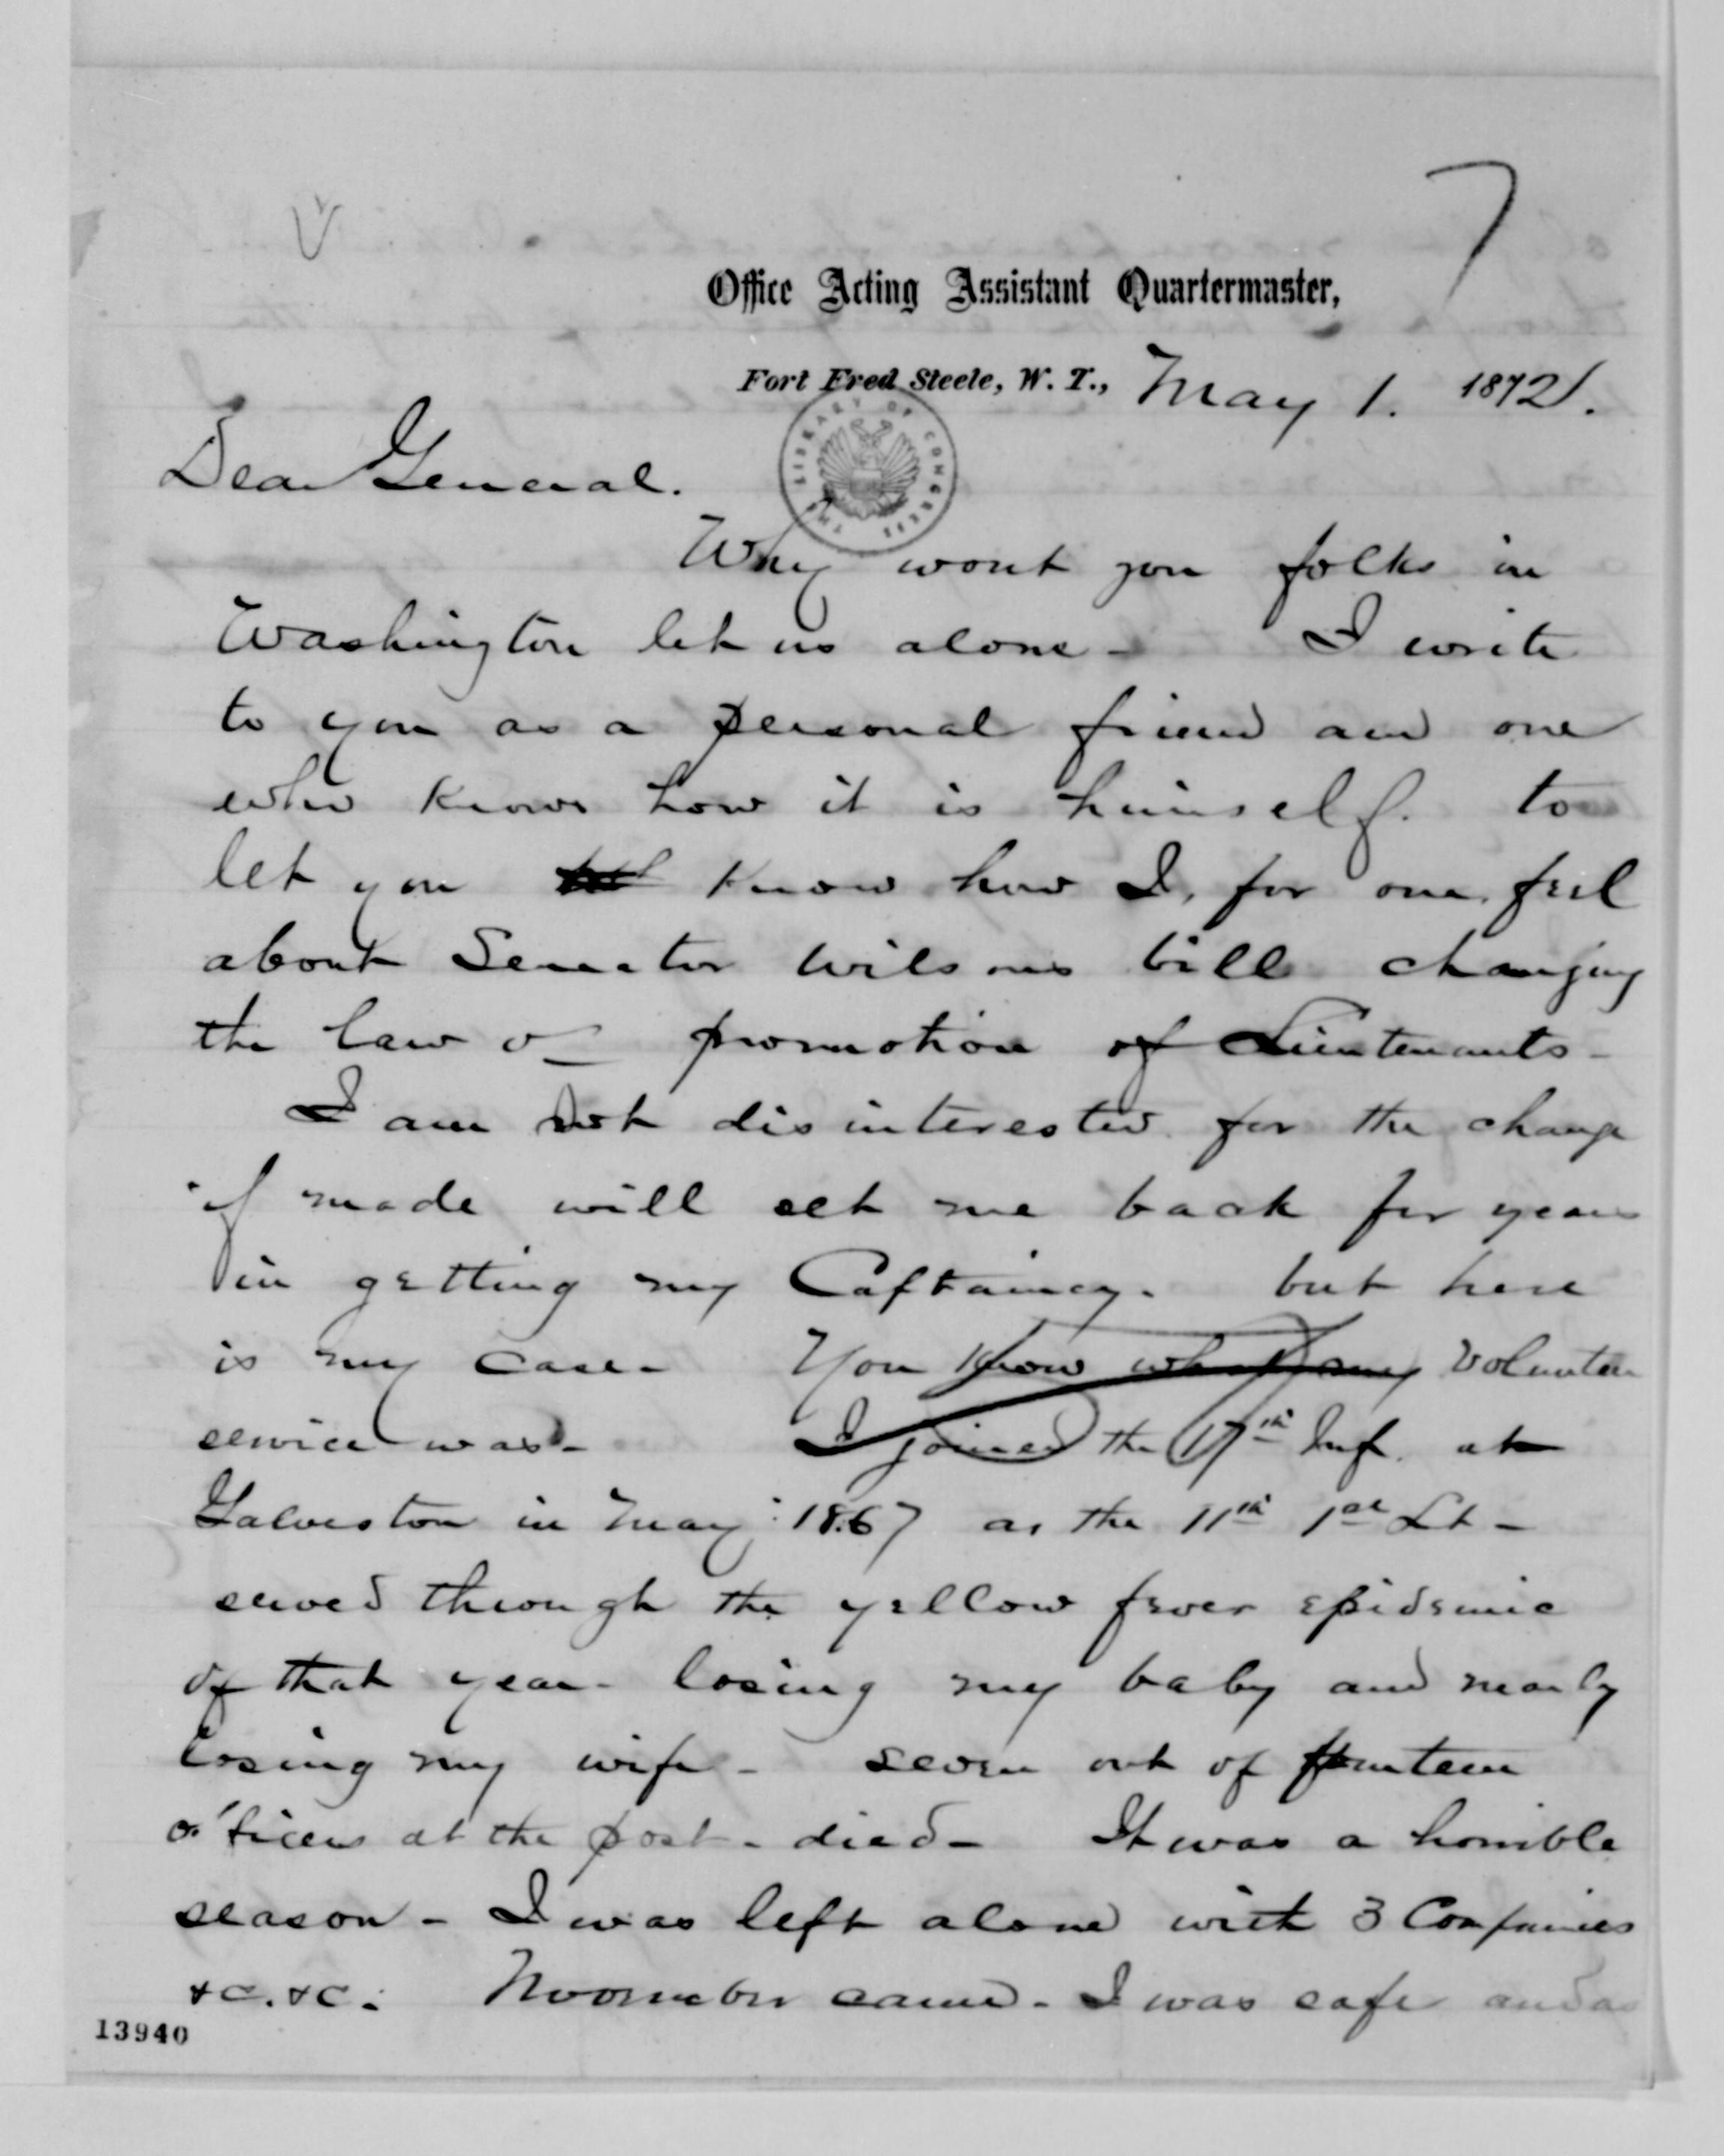 7
Office Acting Assistant Quartermaster,
Fort Fred Steele, W. T., May 1. 1872.
THE LIBRARY OF CONGRESS
Dear General.
Why wont you folks in
Washington let us alone - I write
to you as a personal friend and one
who knows how it is himself. to
let you know how I, for one, feel
about Senator Wilsons bill changing
the law of promotion of Lieutenants -
I am not disinterested for the change
if made will set me back for years
in getting my Captaincy. but here
is my case - You know what my Volunteer
service was - I joined the 17th Inf. at
Galveston in May 1867 as the 11th 1st Lt -
served through the yellow fever epidemic
of that year - losing my baby and nearly
losing my wife - seven out of fourteen
officers at the post - died - It was a horrible
season - I was left alone with 3 Companies
&c. &c. November came - I was safe and as
13940